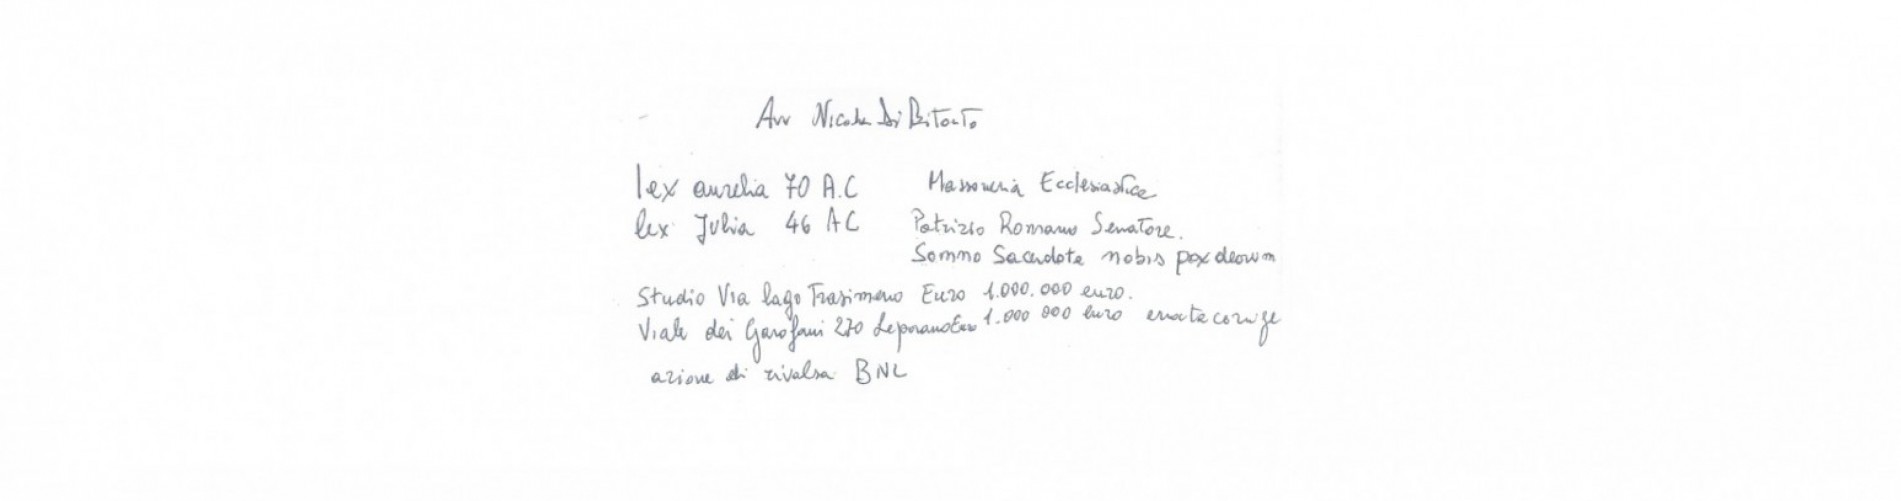 Avv Nicola Di Bitonto
lex aurelia 70 A.C Massoneria Ecclesiastica
lex Julia 46 AC Patrizio Romano Senatore.
Sommo Sacerdote nobis pax deorum
Studio Via lago Trasimeno Euro 1.000.000 euro.
Viale dei Garofani 270 Leporano Euro 1.000 000 euro errata corrige
azione di rivalsa BNL